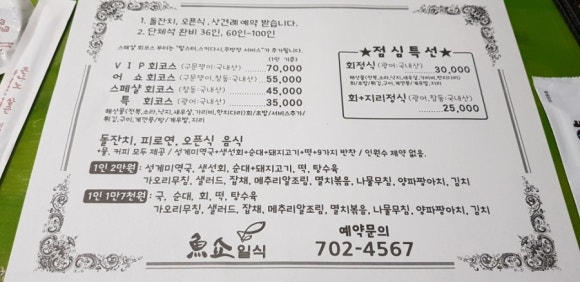 1. 돌잔치, 오픈식, 상견례 예약 받습니다.
2. 단체석 완비 36인, 60인~100인
V I P 회코스 (국내산) 70,000
어 쇼 회코스 (국내산) 55,000
스페샬 회코스 (국내산) 45,000
특 회코스 (광어:국내산) 35,000
해산물(전복,소라,낙지,새우살,가리비,한치다리)회/초밥/서비스추가/
튀김, 구이, 계란품/밥/계우밥,지리
★점심특선★
회정식 (광어:국내산) 30,000
해산물(전복,소라,낙지,새우살,가리비,한치다리)
회/초밥/튀김,구이,계란품/밥/계우밥,지리
회+지리정식 (광어,참돔:국내산)
25,000
돌잔치, 피로연, 오픈식 음식
+물, 커피 모두 제공 / 성게미역국+생선회+순대+돼지고기+떡+9가지 반찬 / 인원수 제약 없음.
1인 2만원 : 성게미역국, 생선회, 순대+돼지고기, 떡, 탕수육
가오리무침, 샐러드, 잡채, 메추리알조림, 멸치볶음, 나물무침, 양파짱아치, 김치
1인 1만7천원 : 국, 순대, 회, 떡, 탕수육
가오리무침, 샐러드, 잡채, 메추리알조림, 멸치볶음, 나물무침, 양파짱아치, 김치
魚쇼일식
예약문의
702-4567